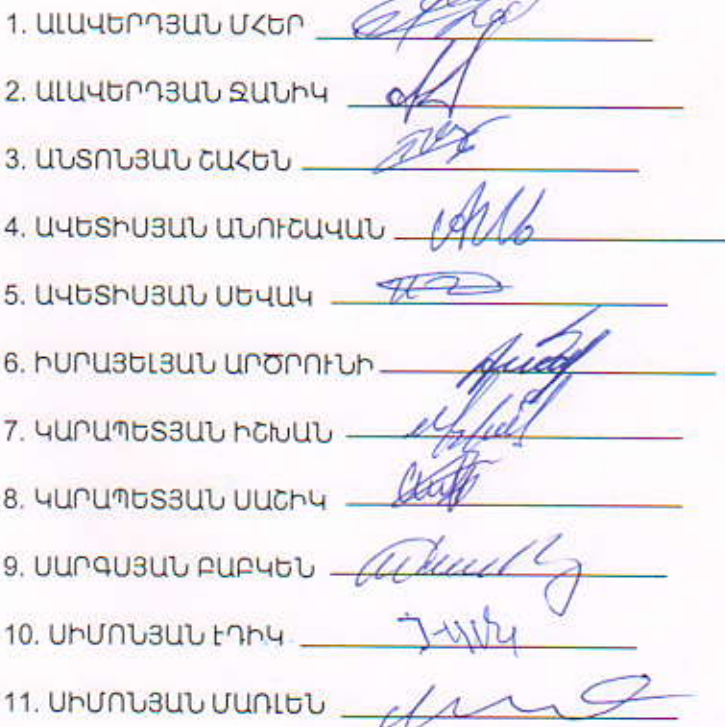 1. ԱԼԱՎԵՐԴՅԱՆ ՄՀԵՐ
2. ԱԼԱՎԵՐԴՅԱՆ ՋԱՆԻԿ
3. ԱՆՏՈՆՅԱՆ ՇԱՀԵՆ
4. ԱՎԵՏԻՍՅԱՆ ԱՆՈՒՇԱՎԱՆ
5. ԱՎԵՏԻՍՅԱՆ ՍԵՎԱԿ
6. ԻՍՐԱՅԵԼՅԱՆ ԱՐԾՐՈՒՆԻ
7. ԿԱՐԱՊԵՏՅԱՆ ԻՇԽԱՆ
8. ԿԱՐԱՊԵՏՅԱՆ ՍԱՇԻԿ
9. ՍԱՐԳՍՅԱՆ ԲԱԲԿԵՆ
10. ՍԻՄՈՆՅԱՆ ԷԴԻԿ
11. ՍԻՄՈՆՅԱՆ ՄԱՌԼԵՆ